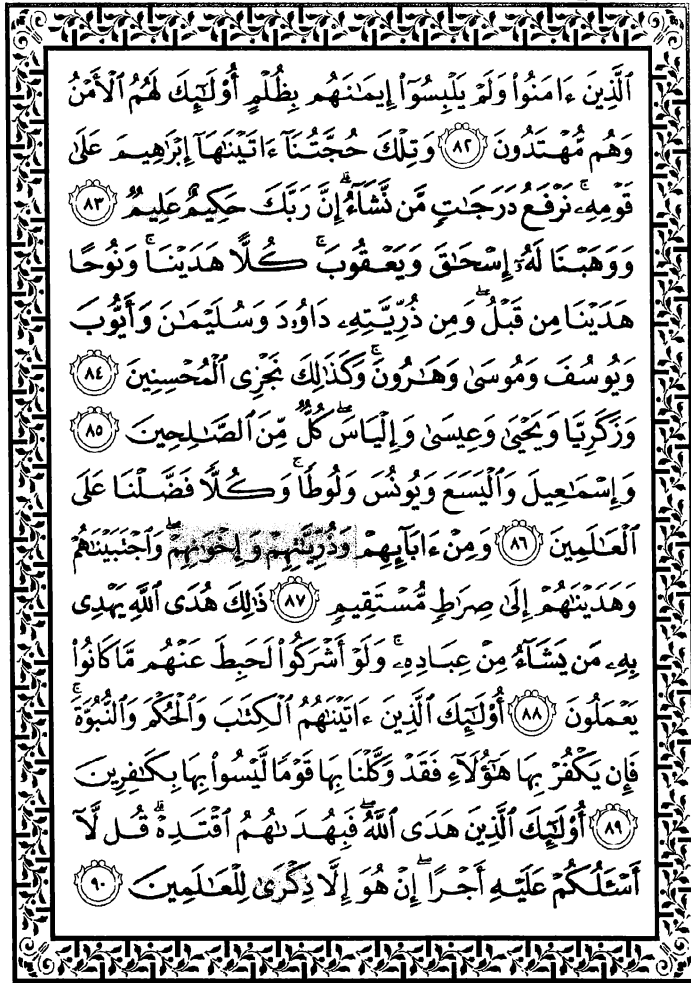 ٱلَّذِينَ ءَامَنُوا۟ وَلَمْ يَلْبِسُوٓا۟ إِيمَـٰنَهُم بِظُلْمٍ أُو۟لَـٰٓئِكَ لَهُمُ ٱلْأَمْنُ
وَهُم مُّهْتَدُونَ ٨٢ وَتِلْكَ حُجَّتُنَآ ءَاتَيْنَـٰهَآ إِبْرَٰهِيمَ عَلَىٰ
قَوْمِهِۦ ۚ نَرْفَعُ دَرَجَـٰتٍ مَّن نَّشَآءُ ۗ إِنَّ رَبَّكَ حَكِيمٌ عَلِيمٌ ٨٣
وَوَهَبْنَا لَهُۥٓ إِسْحَـٰقَ وَيَعْقُوبَ ۚ كُلًّا هَدَيْنَا ۚ وَنُوحًا
هَدَيْنَا مِن قَبْلُ ۖ وَمِن ذُرِّيَّتِهِۦ دَاوُۥدَ وَسُلَيْمَـٰنَ وَأَيُّوبَ
وَيُوسُفَ وَمُوسَىٰ وَهَـٰرُونَ ۚ وَكَذَٰلِكَ نَجْزِى ٱلْمُحْسِنِينَ ٨٤
وَزَكَرِيَّا وَيَحْيَىٰ وَعِيسَىٰ وَإِلْيَاسَ ۖ كُلٌّ مِّنَ ٱلصَّـٰلِحِينَ ٨٥
وَإِسْمَـٰعِيلَ وَٱلْيَسَعَ وَيُونُسَ وَلُوطًا ۚ وَكُلًّا فَضَّلْنَا عَلَى
ٱلْعَـٰلَمِينَ ٨٦ وَمِنْ ءَابَآئِهِمْ وَذُرِّيَّـٰتِهِمْ وَإِخْوَٰنِهِمْ ۖ وَٱجْتَبَيْنَـٰهُمْ
وَهَدَيْنَـٰهُمْ إِلَىٰ صِرَٰطٍ مُّسْتَقِيمٍ ٨٧ ذَٰلِكَ هُدَى ٱللَّهِ يَهْدِى
بِهِۦ مَن يَشَآءُ مِنْ عِبَادِهِۦ ۚ وَلَوْ أَشْرَكُوا۟ لَحَبِطَ عَنْهُم مَّا كَانُوا۟
يَعْمَلُونَ ٨٨ أُو۟لَـٰٓئِكَ ٱلَّذِينَ ءَاتَيْنَـٰهُمُ ٱلْكِتَـٰبَ وَٱلْحُكْمَ وَٱلنُّبُوَّةَ ۚ
فَإِن يَكْفُرْ بِهَا هَـٰٓؤُلَآءِ فَقَدْ وَكَّلْنَا بِهَا قَوْمًا لَّيْسُوا۟ بِهَا بِكَـٰفِرِينَ
٨٩ أُو۟لَـٰٓئِكَ ٱلَّذِينَ هَدَى ٱللَّهُ ۖ فَبِهُدَىٰهُمُ ٱقْتَدِهْ ۗ قُل لَّآ
أَسْـَٔلُكُمْ عَلَيْهِ أَجْرًا ۖ إِنْ هُوَ إِلَّا ذِكْرَىٰ لِلْعَـٰلَمِينَ ٩٠